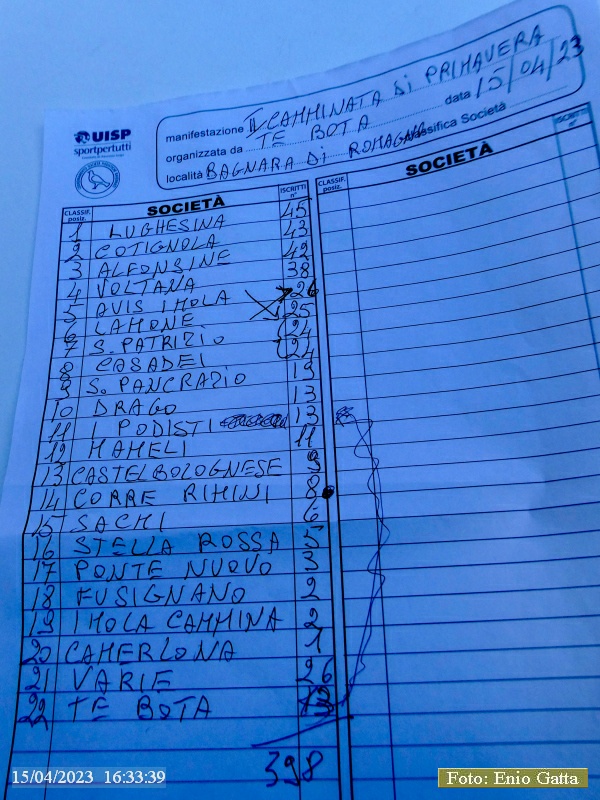 UISP
sportpertutti
manifestazione II CAMMINATA Di PRIMAVERA
organizzata da TE BOTA data 15/04/23
località BAGNARA Di ROMAGNA Classifica Società
CLASSIF. posiz. SOCIETÀ ISCRITTI n° CLASSIF. posiz. SOCIETÀ ISCRITTI n°
1 LUGHESINA 45
2 COTIGNOLA 43
3 ALFONSINE 42
4 VOLTANA 38
5 AVIS IMOLA 26
6 LAMONE 25
7 S. PATRIZIO 24
8 CASADEI 24
9 S. PANCRAZIO 19
10 DRAGO 13
11 I PODISTI 13
12 MAMELI 11
13 CASTELBOLOGNESE 9
14 CORRE RIMINI 8
15 SACMI 6
16 STELLA ROSSA 5
17 PONTE NUOVO 3
18 FUSIGNANO 2
19 IMOLA CAMMINA 2
20 CAMERLONA 1
21 VARIE 26
22 TE BOTA
398
15/04/2023 16:33:39
Foto: Enio Gatta